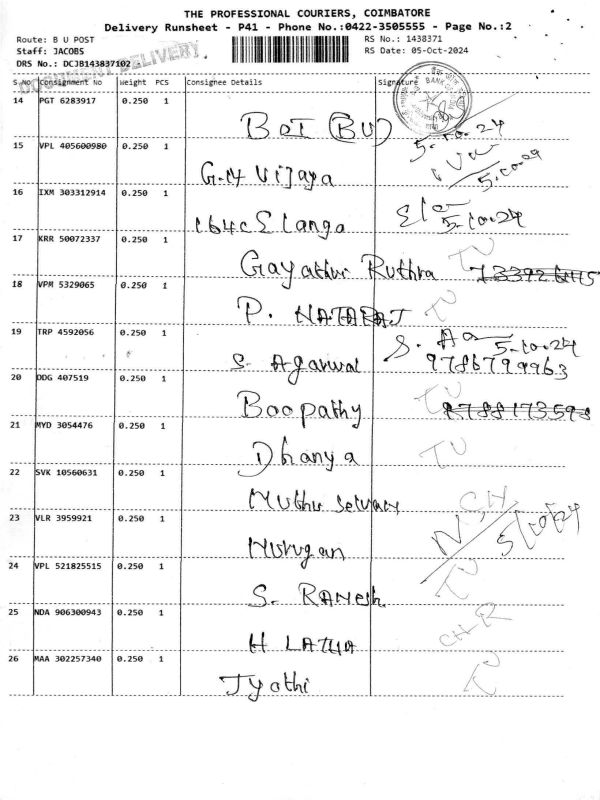 THE PROFESSIONAL COURIERS, COIMBATORE
Delivery Runsheet - P41 - Phone No.:0422-3505555 - Page No.:2
Route: B U POST RS No.: 1438371
Staff: JACOBS RS Date: 05-Oct-2024
DRS No.: DCJB143837102
DOCUMENT DELIVERY
S No Consignment No Weight PCS Consignee Details Signature
14 PGT 6283917 0.250 1
BOI (BU) 5.10.24
15 VPL 405600980 0.250 1
G.M Vijaya 5.10.24
16 IXM 303312914 0.250 1
164c Elango 5.10.24
17 KRR 50072337 0.250 1
Gayathri Ruthra TU
18 VPM 5329065 0.250 1
P. NATARAJ TU
19 TRP 4592056 0.250 1
S. Agarwal 5.10.24
9786799963
20 DDG 407519 0.250 1
Boopathy TU 8788173598
21 MYD 3054476 0.250 1
Dhanya TU
22 SVK 10560631 0.250 1
Muthu Selvam CH
23 VLR 3959921 0.250 1
Murugan N 5/10/24
24 VPL 521825515 0.250 1
S. RAMESH TU
25 NDA 906300943 0.250 1
H LATHA CH-R
26 MAA 302257340 0.250 1
Jyothi TU